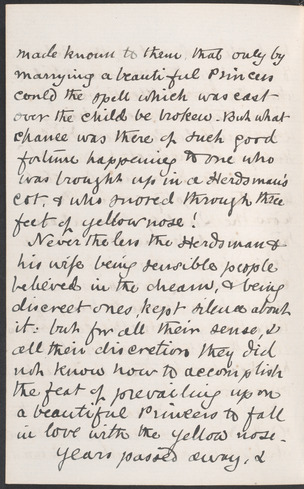 made known to them that only by
marrying a beautiful Princess
could the spell which was cast
over the child be broken. But what
chance was there of such good
fortune happening to one who
was brought up in a Herdsman's
cot, & who snored through three
feet of yellow nose!
Never the less the Herdsman &
his wife being sensible people
believed in the dream, & being
discreet ones, kept silence about
it: but for all their sense, &
all their discretion they did
not know how to accomplish
the feat of prevailing upon
a beautiful Princess to fall
in love with the yellow nose.
Years passed away, &